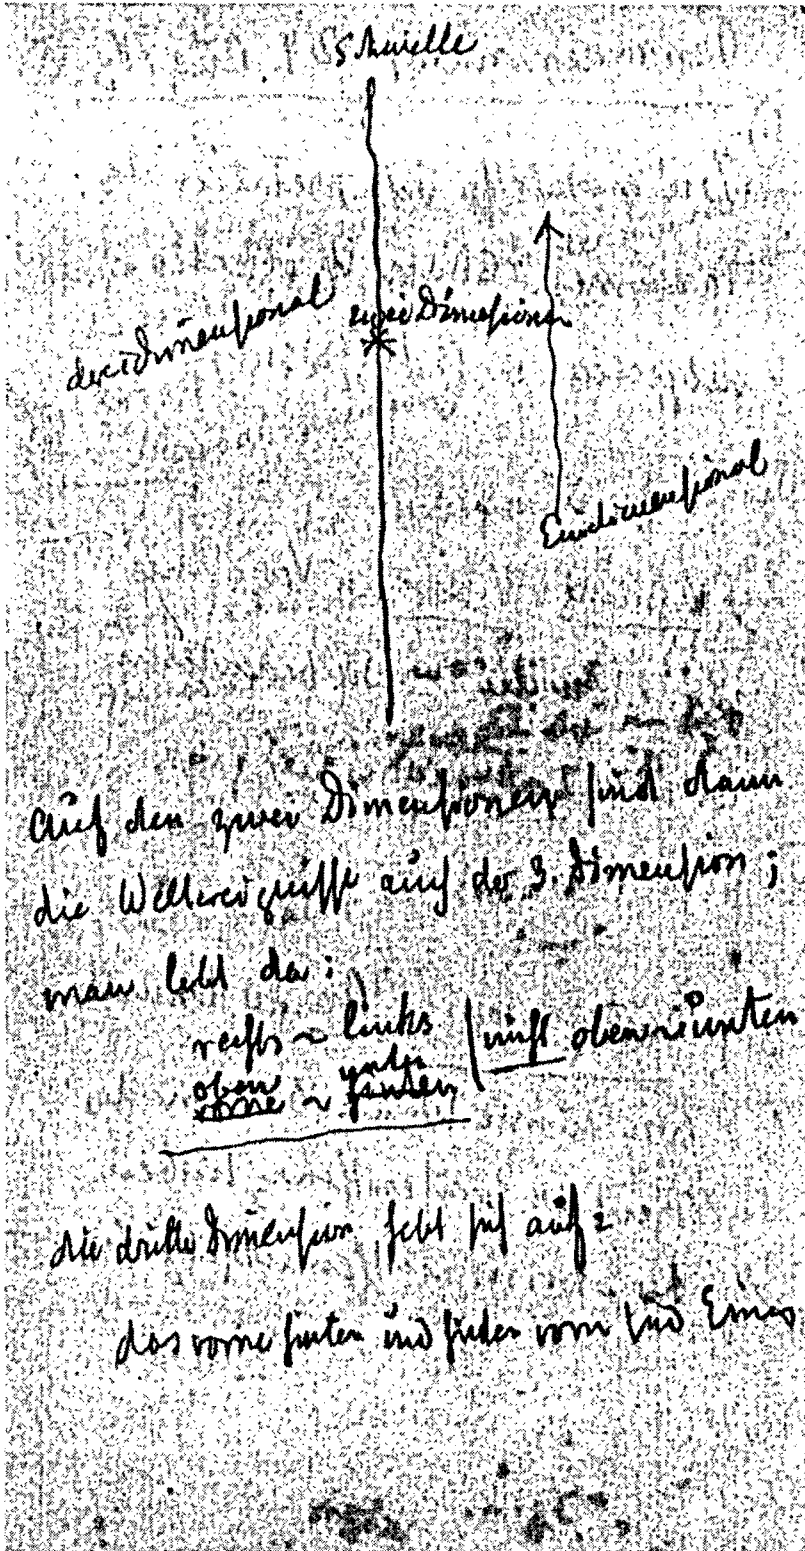 Schwelle
dreidimensional
zwei Dimensionen
Eindimensional
Auf den zwei Dimensionen sind dann
die Weltereignisse auch der 3. Dimension;
man lebt da:
rechts ~ links | nicht oben unten
oben unten
vorne ~ hinten
die dritte Dimension hebt sich auf:
das vorne hinten und hinten vorn sind Eines